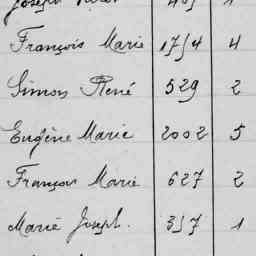 Joseph
François Marie 1754 4
Simon René 529 2
Eugène Marie 2002 5
François Marie 627 2
Marie Joseph. 357 1